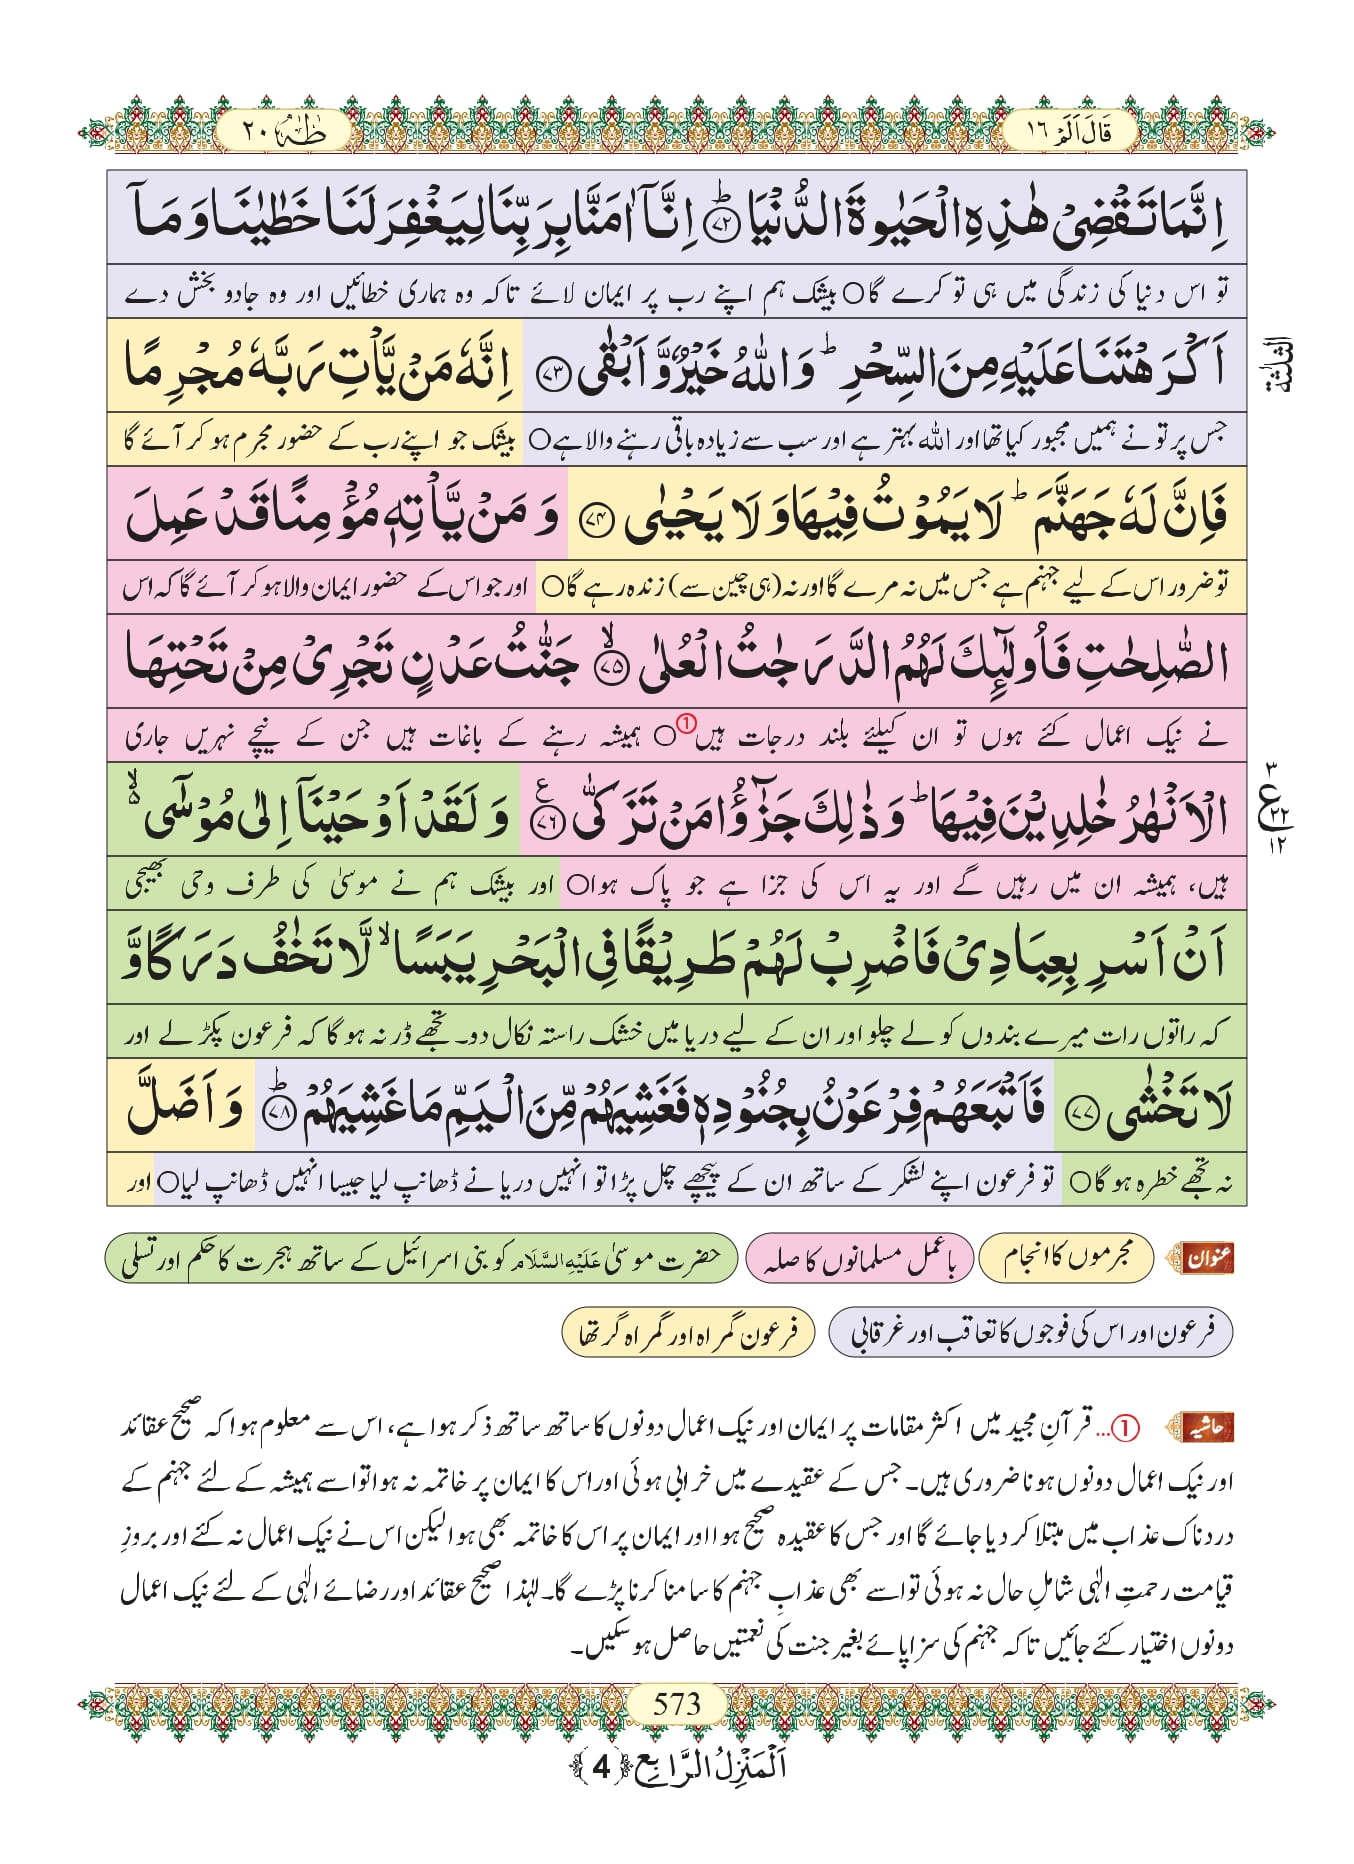 قَالَ اَلَمۡ ۱۶
طٰهٰ ۲۰
اِنَّمَا تَقۡضِیۡ هٰذِهِ الۡحَیٰوةَ الدُّنۡیَا ؕ﴿۷۲﴾ اِنَّاۤ اٰمَنَّا بِرَبِّنَا لِیَغۡفِرَ لَنَا خَطٰیٰنَا وَ مَاۤ
تو اس دنیا کی زندگی میں ہی تو کرے گا○ بیشک ہم اپنے رب پر ایمان لائے تاکہ وہ ہماری خطائیں اور وہ جادو بخش دے
اَکۡرَهۡتَنَا عَلَیۡهِ مِنَ السِّحۡرِ ؕ وَ اللّٰهُ خَیۡرٌ وَّ اَبۡقٰی ﴿۷۳﴾ اِنَّهٗ مَنۡ یَّاۡتِ رَبَّهٗ مُجۡرِمًا
الثلٰثة
جس پر تو نے ہمیں مجبور کیا تھا اور اللہ بہتر ہے اور سب سے زیادہ باقی رہنے والا ہے○ بیشک جو اپنے رب کے حضور مجرم ہو کر آئے گا
فَاِنَّ لَهٗ جَهَنَّمَ ؕ لَا یَمُوۡتُ فِیۡهَا وَ لَا یَحۡیٰی ﴿۷۴﴾ وَ مَنۡ یَّاۡتِهٖ مُؤۡمِنًا قَدۡ عَمِلَ
تو ضرور اس کے لیے جہنم ہے جس میں نہ مرے گا اور نہ (ہی چین سے) زندہ رہے گا○ اور جو اس کے حضور ایمان والا ہو کر آئے گا کہ اس
الصّٰلِحٰتِ فَاُولٰٓئِکَ لَهُمُ الدَّرَجٰتُ الۡعُلٰی ﴿ۙ۷۵﴾ جَنّٰتُ عَدۡنٍ تَجۡرِیۡ مِنۡ تَحۡتِهَا
نے نیک اعمال کئے ہوں تو ان کیلئے بلند درجات ہیں①○ ہمیشہ رہنے کے باغات ہیں جن کے نیچے نہریں جاری
الۡاَنۡهٰرُ خٰلِدِیۡنَ فِیۡهَا ؕ وَ ذٰلِکَ جَزٰٓؤُا مَنۡ تَزَکّٰی ﴿٪۷۶﴾ وَ لَقَدۡ اَوۡحَیۡنَاۤ اِلٰی مُوۡسٰۤی ۬ۙ
۳ ع ۲۲ ۱۲
ہیں، ہمیشہ ان میں رہیں گے اور یہ اس کی جزا ہے جو پاک ہوا○ اور بیشک ہم نے موسیٰ کی طرف وحی بھیجی
اَنۡ اَسۡرِ بِعِبَادِیۡ فَاضۡرِبۡ لَهُمۡ طَرِیۡقًا فِی الۡبَحۡرِ یَبَسًا ۙ لَّا تَخٰفُ دَرَکًا وَّ
کہ راتوں رات میرے بندوں کو لے چلو اور ان کے لیے دریا میں خشک راستہ نکال دو۔ تجھے ڈر نہ ہو گا کہ فرعون پکڑ لے اور
لَا تَخۡشٰی ﴿۷۷﴾ فَاَتۡبَعَهُمۡ فِرۡعَوۡنُ بِجُنُوۡدِهٖ فَغَشِیَهُمۡ مِّنَ الۡیَمِّ مَا غَشِیَهُمۡ ﴿ؕ۷۸﴾ وَ اَضَلَّ
نہ تجھے خطرہ ہو گا○ تو فرعون اپنے لشکر کے ساتھ ان کے پیچھے چل پڑا تو انہیں دریا نے ڈھانپ لیا جیسا انہیں ڈھانپ لیا○ اور
عنوان مجرموں کا انجام باعمل مسلمانوں کا صلہ حضرت موسیٰ عَلَیْهِ السَّلَام کو بنی اسرائیل کے ساتھ ہجرت کا حکم اور تسلی
فرعون اور اس کی فوجوں کا تعاقب اور غرقابی فرعون گمراہ اور گمراہ گر تھا
حاشیہ ①... قرآنِ مجید میں اکثر مقامات پر ایمان اور نیک اعمال دونوں کا ساتھ ساتھ ذکر ہوا ہے، اس سے معلوم ہوا کہ صحیح عقائد
اور نیک اعمال دونوں ہونا ضروری ہیں۔ جس کے عقیدے میں خرابی ہوئی اور اس کا ایمان پر خاتمہ نہ ہوا تو اسے ہمیشہ کے لئے جہنم کے
دردناک عذاب میں مبتلا کر دیا جائے گا اور جس کا عقیدہ صحیح ہوا اور ایمان پر اس کا خاتمہ بھی ہوا لیکن اس نے نیک اعمال نہ کئے اور بروزِ
قیامت رحمتِ الٰہی شاملِ حال نہ ہوئی تو اسے بھی عذابِ جہنم کا سامنا کرنا پڑے گا۔ لہٰذا صحیح عقائد اور رضائے الٰہی کے لئے نیک اعمال
دونوں اختیار کئے جائیں تاکہ جہنم کی سزا پائے بغیر جنت کی نعمتیں حاصل ہو سکیں۔
573
اَلۡمَنۡزِلُ الرَّابِع ﴿4﴾